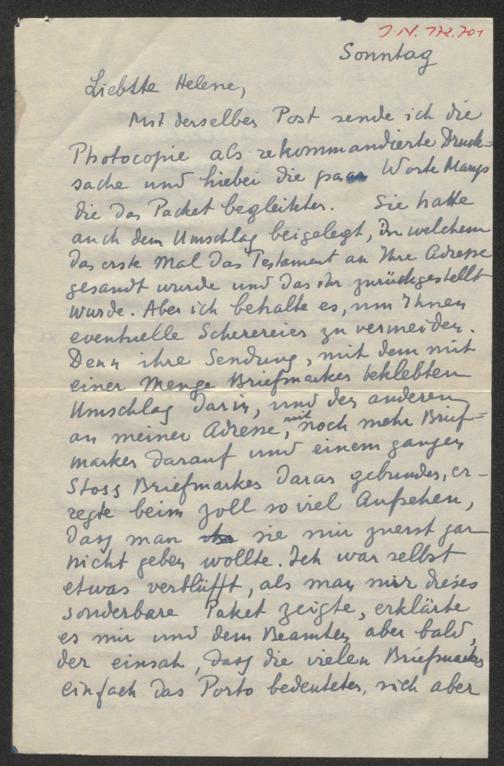 J.N. 172.701
Sonntag
Liebste Helene,
Mit derselben Post sende ich die
Photocopie als rekommandierte Druck-
sache und hiebei die paar Worte Marys
die das Packet begleiteten. Sie hatte
auch dem Umschlag beigelegt, in welchem
das erste Mal das Testament an Ihre Adresse
gesandt wurde und das ihr zurückgestellt
wurde. Aber ich behalte es, um Ihnen
eventuelle Scherereien zu vermeiden.
Denn ihre Sendung, mit dem mit
einer Menge Briefmarken beklebten
Umschlag darin, und der anderen
an meiner Adresse, mit noch mehr Brief-
marken darauf und einem ganzen
Stoss Briefmarken daran gebunden, er-
regte beim Zoll so viel Aufsehen,
dass man sie mir zuerst gar
nicht geben wollte. Ich war selbst
etwas verblüfft, als man mir dieses
sonderbare Paket zeigte, erklärte
es mir und dem Beamten aber bald,
der einsah, dass die vielen Briefmarken
einfach das Porto bedeuteten, sich aber